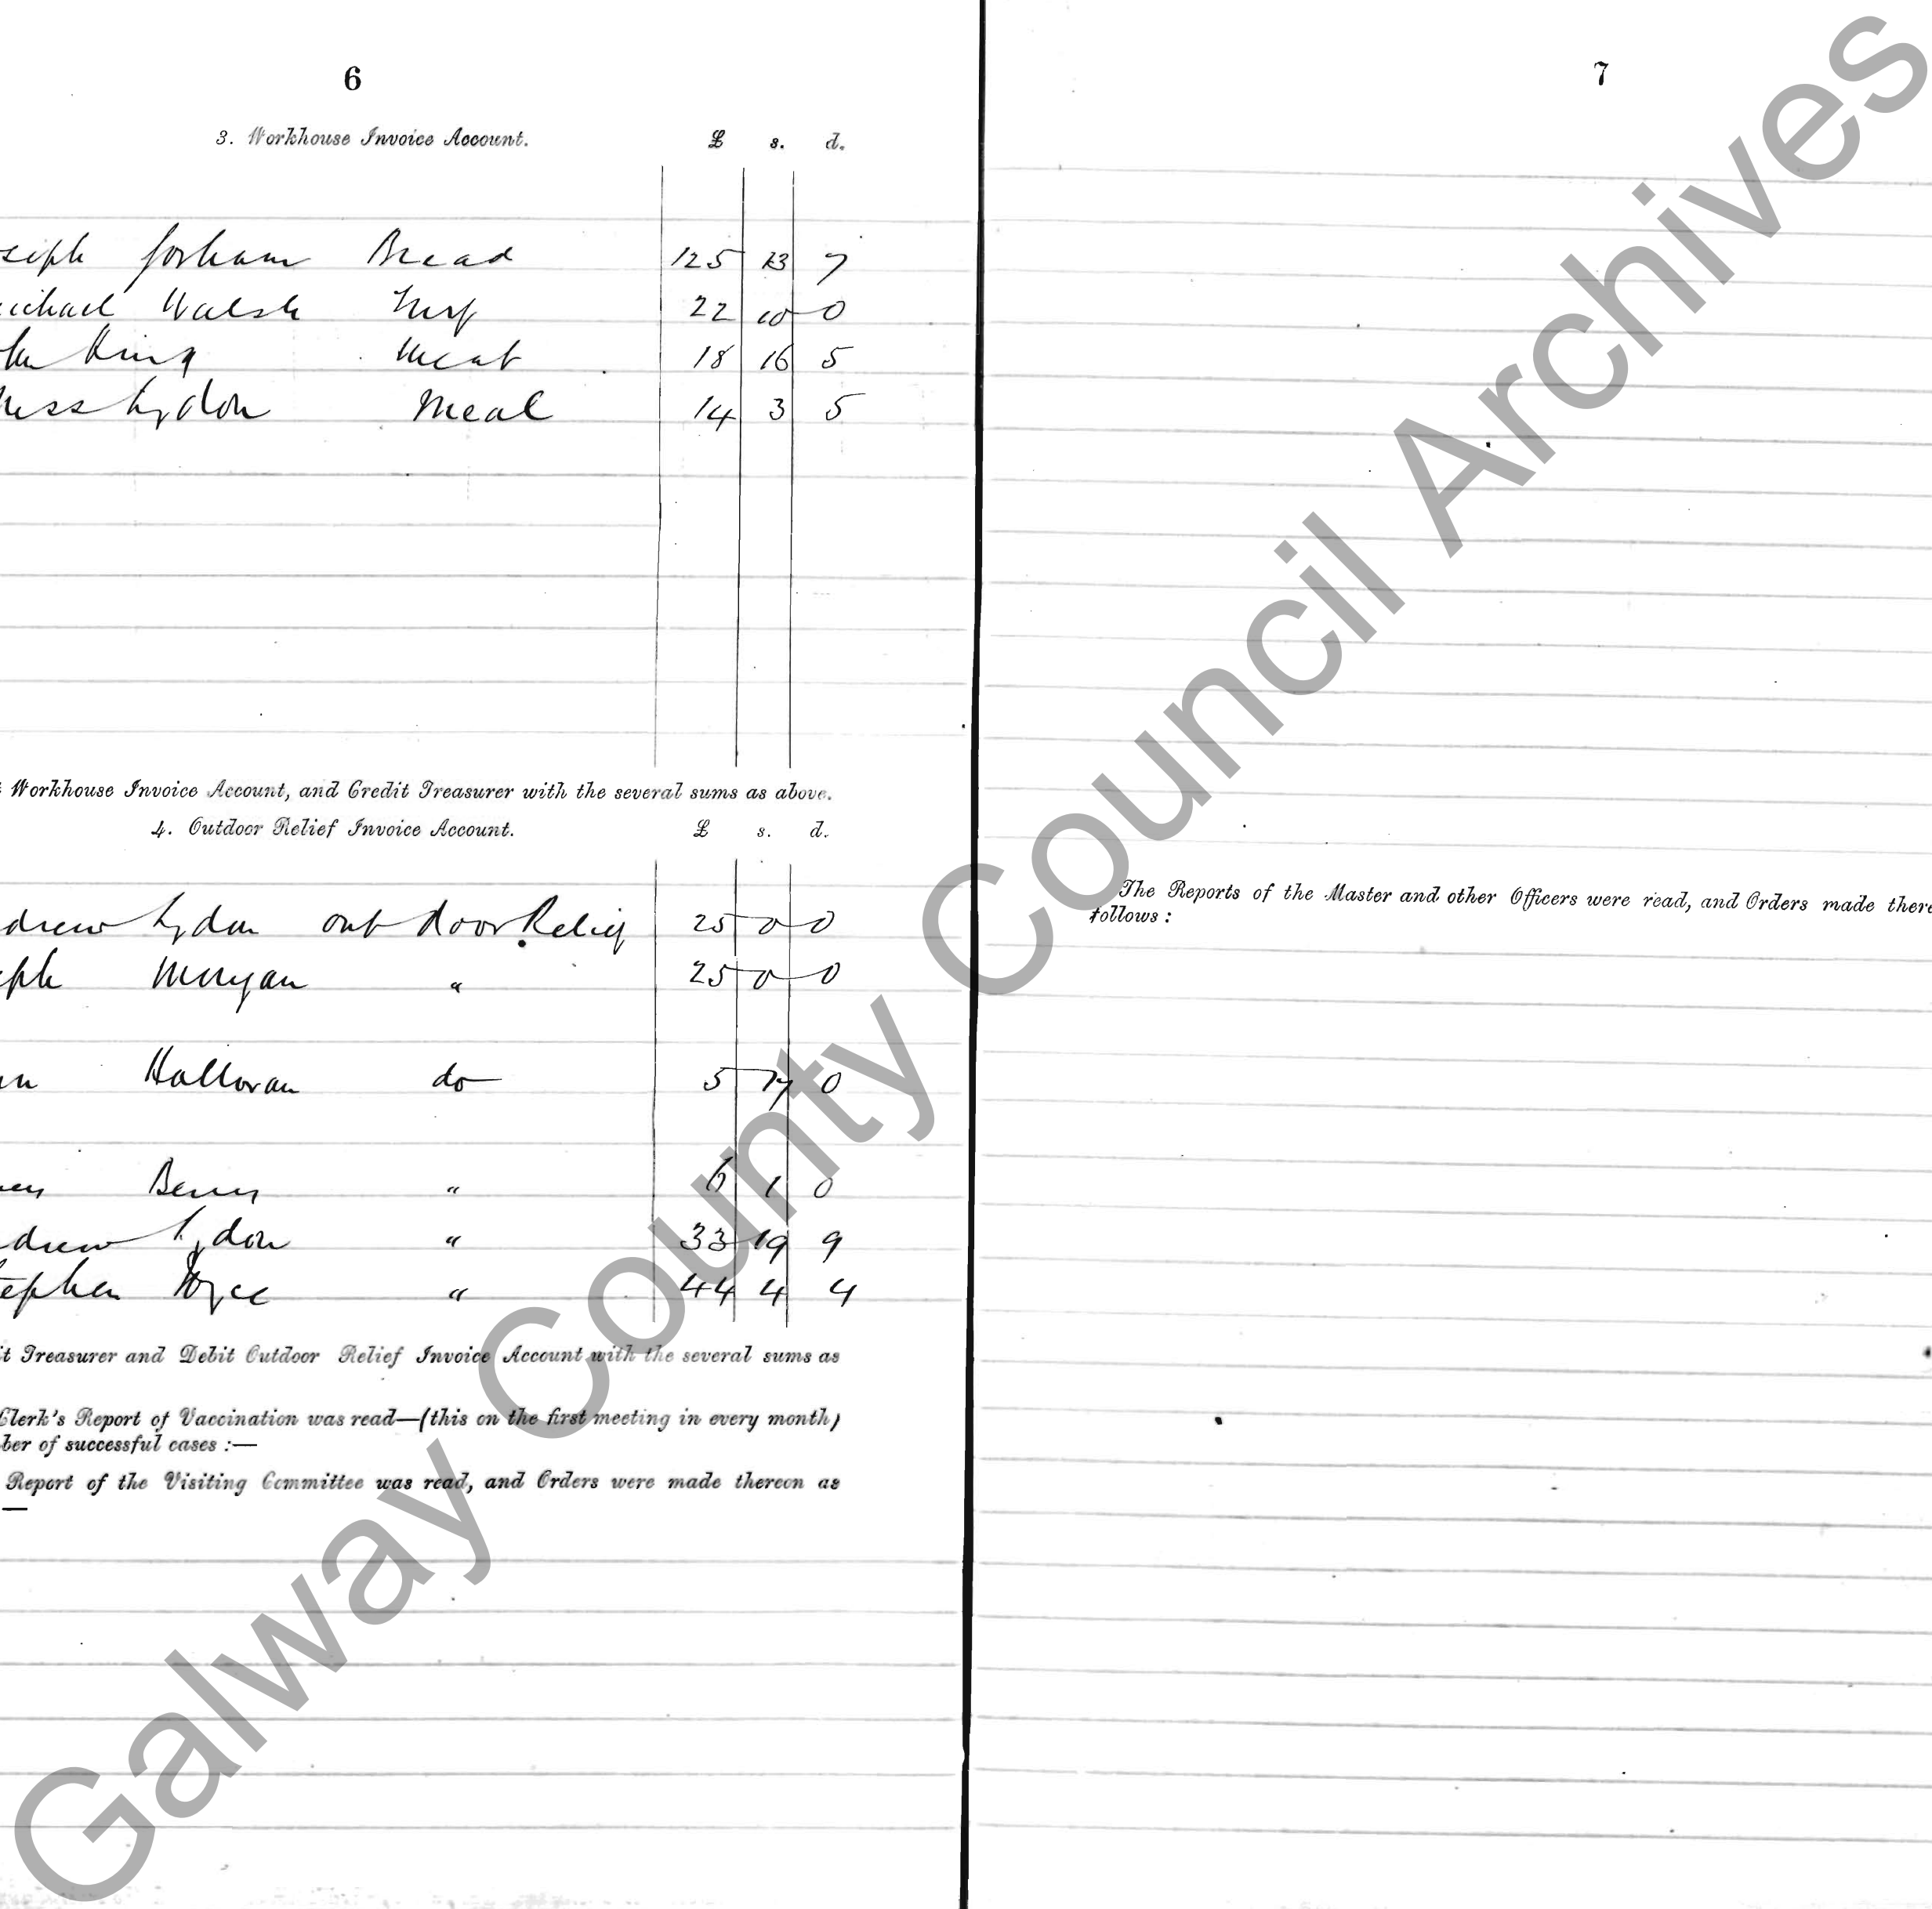 6
3. Workhouse Invoice Account. £ s. d.
seph Gorham Bread 125 13 7
ichael Walsh Turf 22 10 0
hn King Meat 18 16 5
Lydon Meal 14 3 5
Workhouse Invoice Account, and Credit Treasurer with the several sums as above.
4. Outdoor Relief Invoice Account. £ s. d.
drew Lydon out door Relief 25 0 0
eph Morgan " 25 0 0
n Halloran do 5 17 0
Berry " 6 1 0
drew Lydon " 33 19 9
tephen Joyce " 44 4 4
it Treasurer and Debit Outdoor Relief Invoice Account with the several sums as
Clerk's Report of Vaccination was read—(this on the first meeting in every month)
ber of successful cases :—
Report of the Visiting Committee was read, and Orders were made thereon as
—
7
The Reports of the Master and other Officers were read, and Orders made there
follows :
Galway County Council Archives